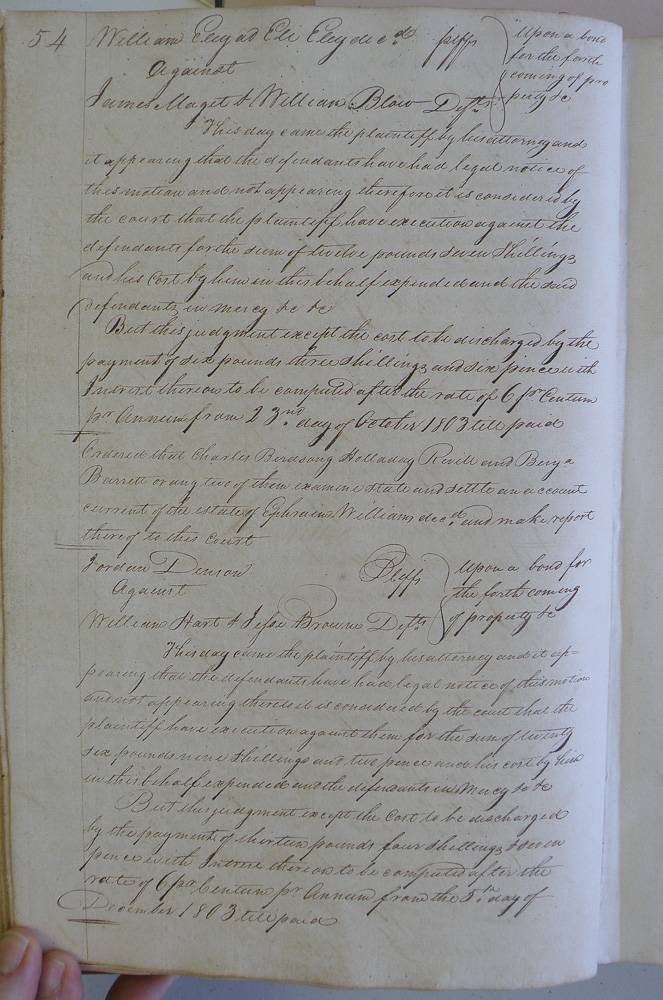 54
William Eley ad Eli Eley decd. plff } Upon a bond
Against for the forth
coming of pro
James Maget & William Blow Defts. perty &c
This day came the plaintiff by his attorney and
it appearing that the defendants have had legal notice of
this motion and not appearing therefore it is considered by
the court that the plaintiff have execution against the
defendants for the sum of twelve pounds seven shillings
and his Cost by him in this behalf expended and the said
defendants in mercy &c &c
But this judgment except the cost to be discharged by the
payment of six pounds three shillings and six pence with
Interest thereon to be computed after the rate of 6 pr Centum
pr Annum from 23nd. day of October 1803 till paid
Ordered that Charles Birdsong Holladay Revill and
Barrett or any two of them examine state and settle an account
current of the estate of Ephraim Williams decd. and make report
thereof to this Court
Jordan Denson Plff } Upon a bond for
Against the forth coming
William Hart & Jesse Browne Defts. of property &c
This day came the plaintiff by his attorney and it ap=
pearing that the defendants have had legal notice of this motion
and not appearing thereto it is considered by the court that the
plaintiff have execution against them for the sum of twenty
six pounds nine shillings and two pence and his cost by him
in this behalf expended and the defendants in Mercy &c &c
But this judgment except the Cost to be discharged
by the payment of thirteen pounds four shillings & seven
pence with Interest thereon to be computed after the
rate of 6 pr Centum pr Annum from the 5th. day of
December 1803 till paid